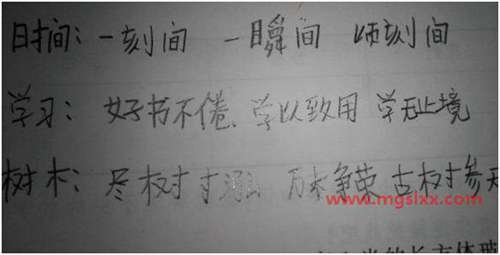 时间：一刻间 一瞬间 顷刻间
学习：好书不倦、学以致用 学无止境
树木：尽树寸 万木争荣 古树参天
www.mgslxx.com
的长方体玻